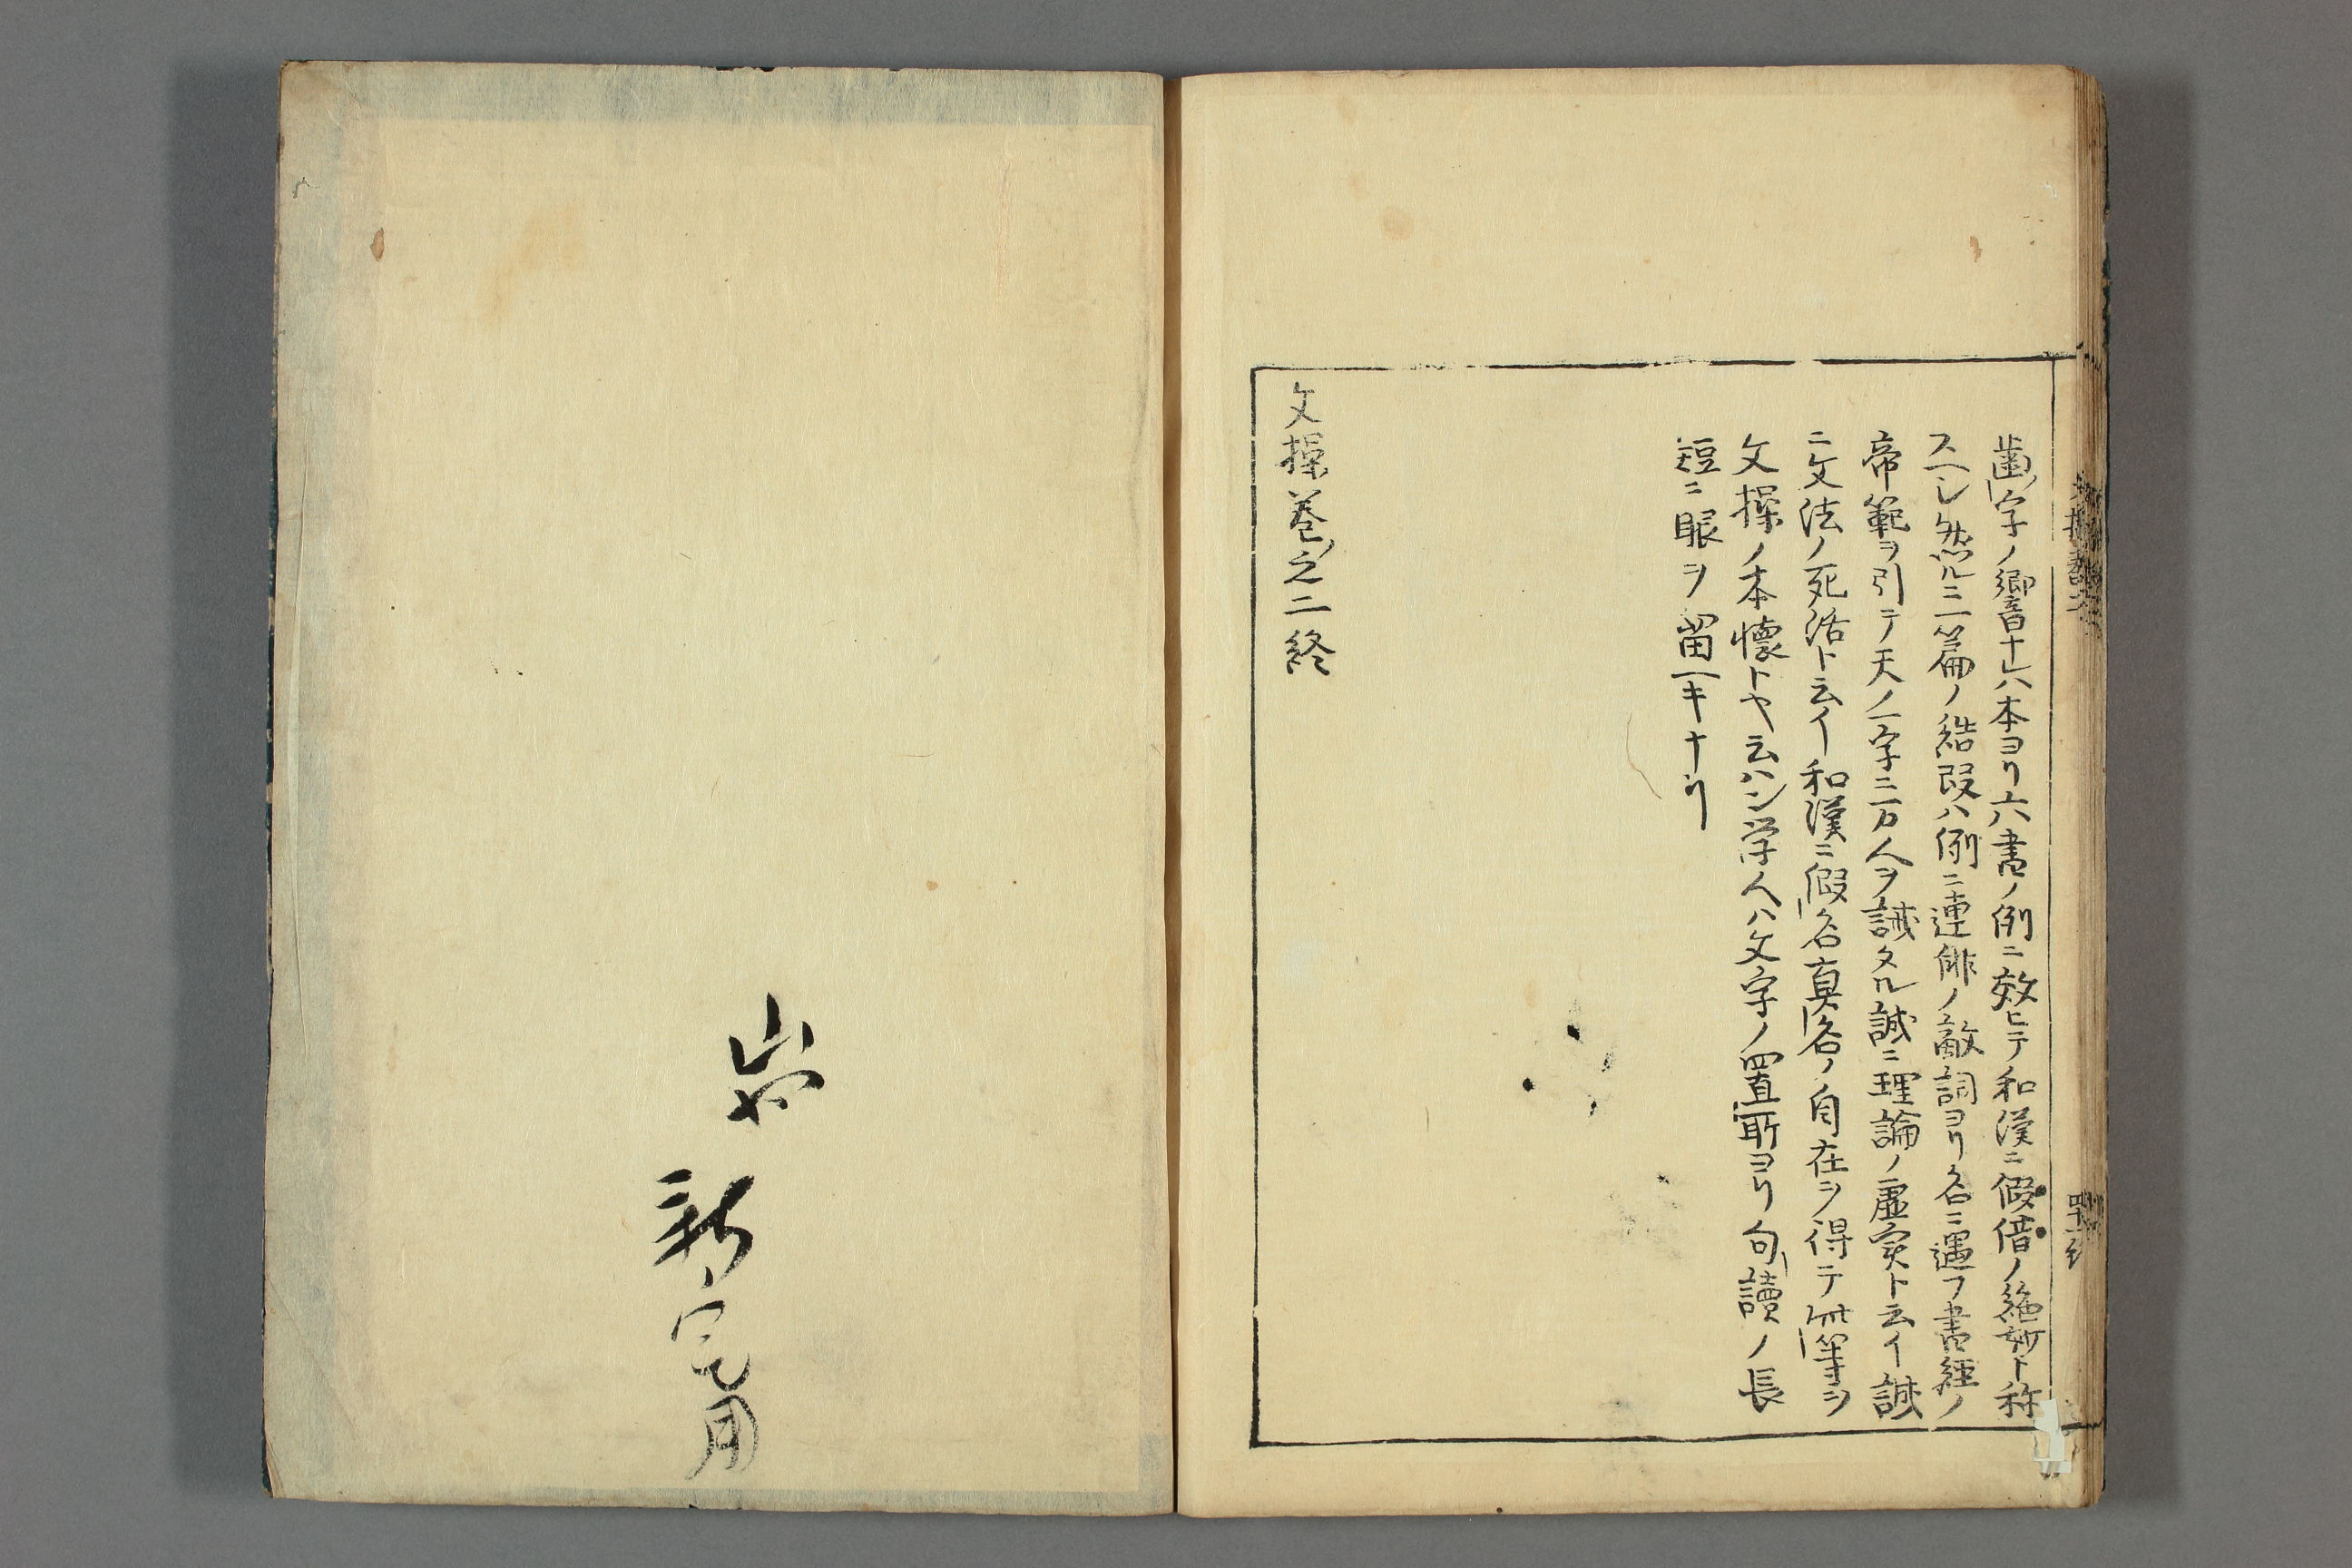 歯字ノ郷音ナレハ本ヨリ六書ノ例ニ效ヒテ和漢ニ假借ノ絶妙ト称
スヘシ然ルニ一篇ノ結段ハ例ニ連俳ノ敵詞ヨリ名ニ遇フ書經ノ
帝範ヲ引テ天ノ一字ニ万人ヲ誡タル誠ニ理論ノ虚実ト云イ誠
ニ文法ノ死活ト云イ和漢ニ假名真名ノ自在ヲ得テ無等ヲ
文操ノ本懷トヤ云ハン学人ハ文字ノ置所ヨリ句讀ノ長
短ニ眼ヲ留ヘキナリ
文操巻之二終
新宅用